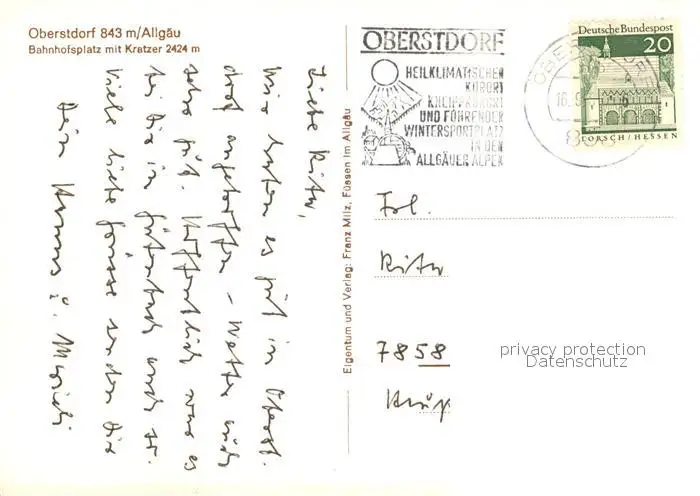 Oberstdorf 843 m/Allgäu
Bahnhofsplatz mit Kratzer 2424 m
Liebe Rita,
Wir haben es gut in Oberst-
dorf angetroffen - Wetter auch
sehr gut. Hoffentlich war es
bei Dir in auch so.
Viele liebe Grüsse senden Dir
Dein Hannes u.
Eigentum und Verlag: Franz Milz, Füssen im Allgäu
OBERSTDORF
HEILKLIMATISCHER
KURORT
KNEIPPKURORT
UND FÜHRENDER
WINTERSPORTPLATZ
IN DEN
ALLGÄUER ALPEN
Deutsche Bundespost
20
LORSCH/HESSEN
Frl.
Rita
7858
privacy protection
Datenschutz